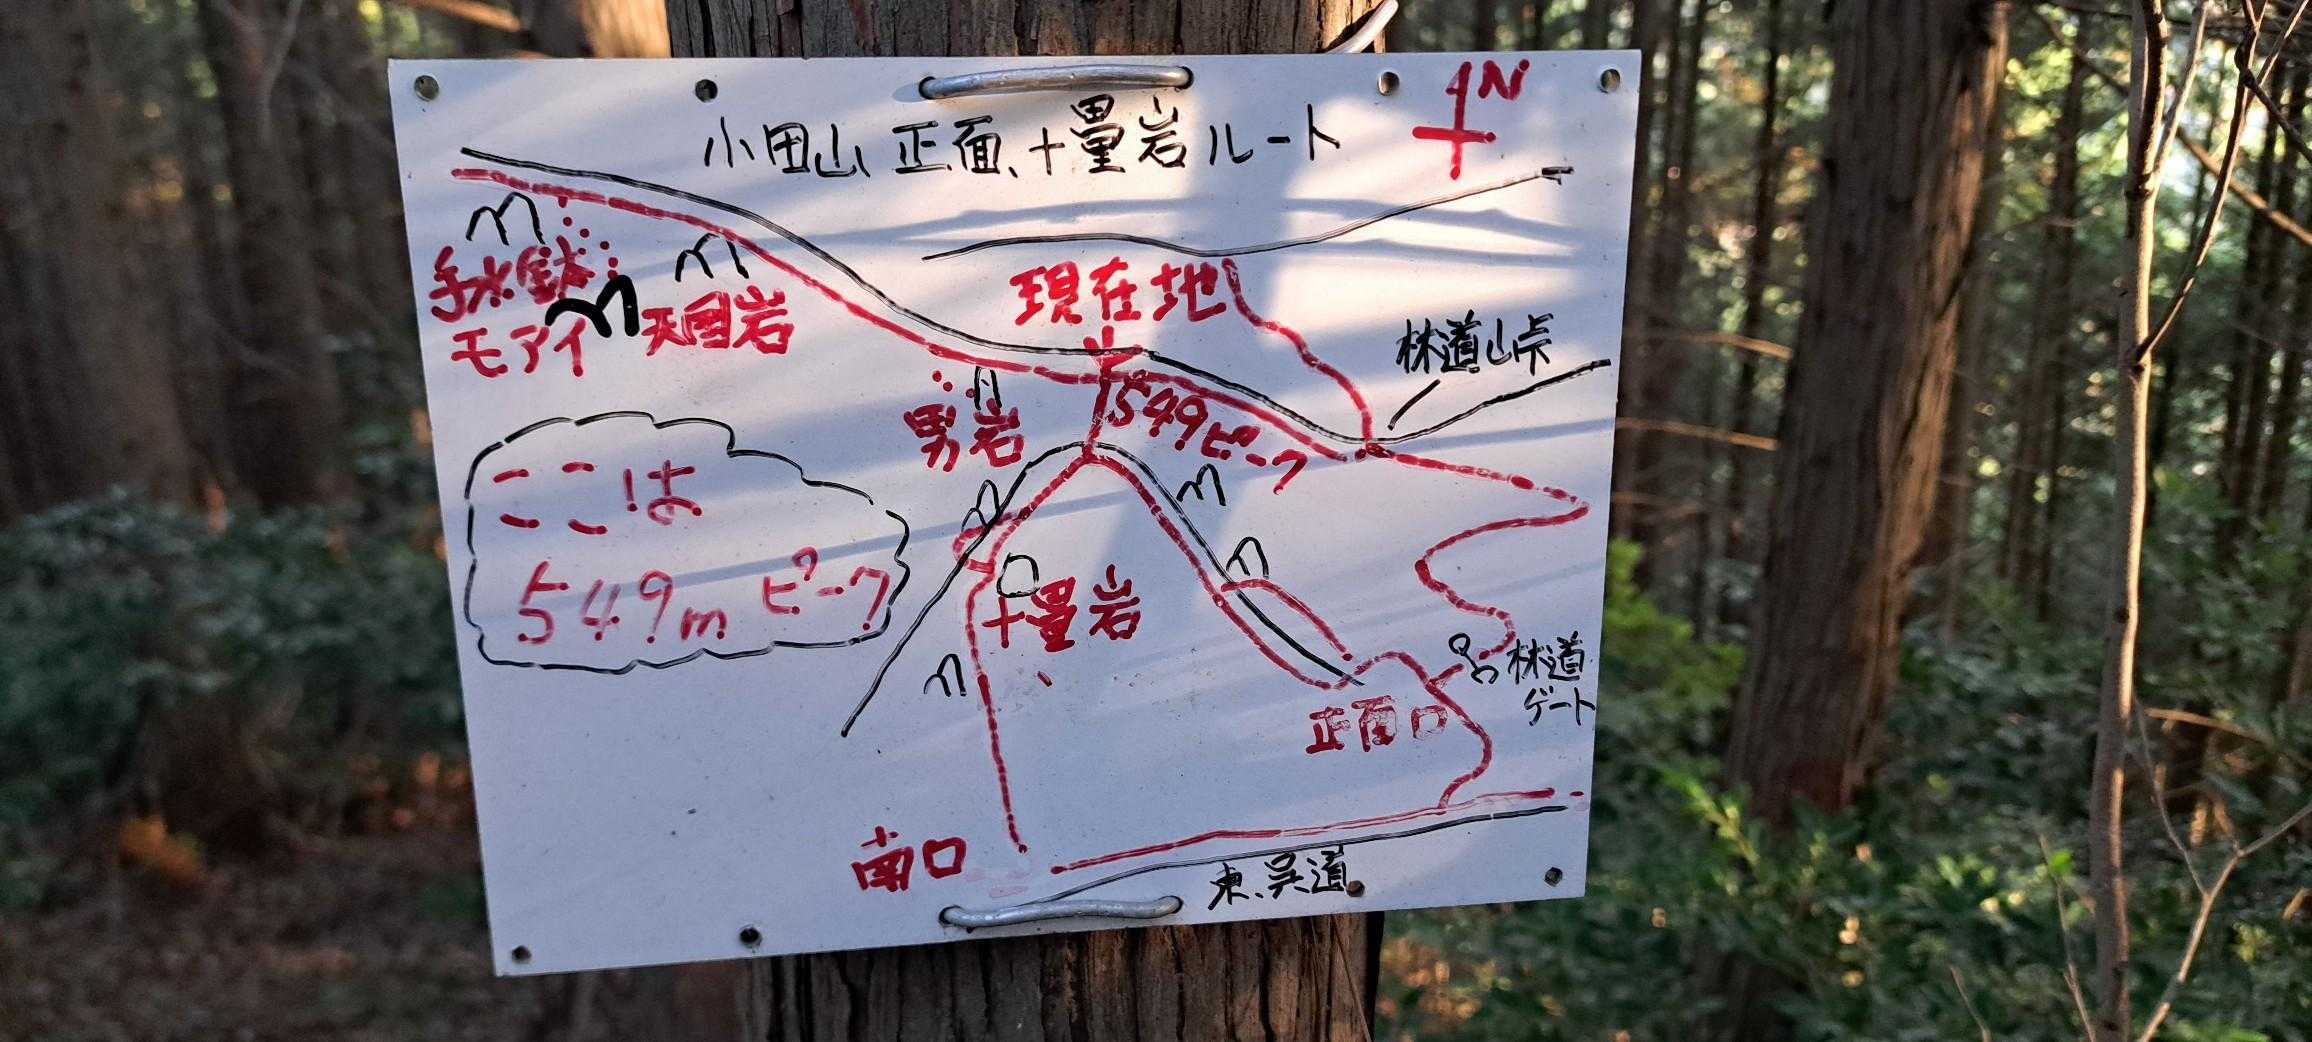 小田山 正面、十畳岩ルート
N
現在地
手水鉢
モアイ
天国岩
林道峠
男岩
549ピーク
ここは
549m ピーク
十畳岩
林道
ゲート
正面口
南口
東呉道